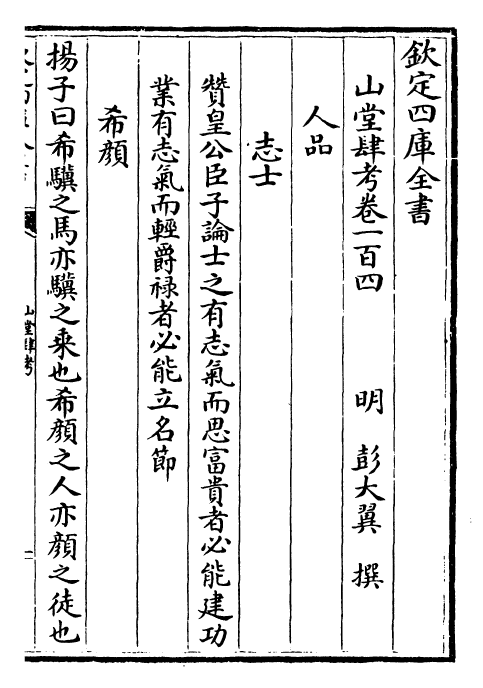 欽定四庫全書
山堂肆考卷一百四
明 彭大翼 撰
人品
志士
贊皇公臣子論士之有志氣而思富貴者必能建功
業有志氣而輕爵禄者必能立名節
希顔
揚子曰希驥之馬亦驥之乗也希顔之人亦顔之徒也
山堂肆考